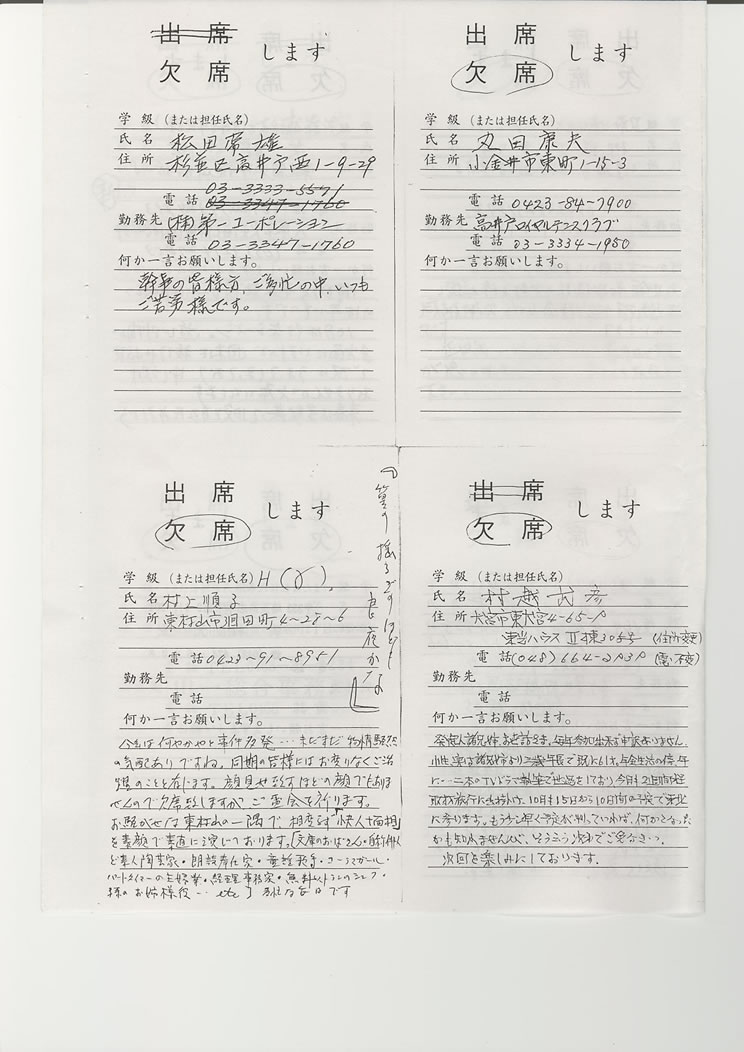 出席
欠席
します
学級（または担任氏名）
氏名 松田常雄
住所 杉並区高井戸西1-9-29
03-3333-5571
電話 03-3347-1760
勤務先 (株)第一コーポレーション
電話 03-3347-1760
何か一言お願いします。
幹事の皆様方、ご多忙の中、いつも
ご苦労様です。
出席
欠席
します
学級（または担任氏名）
氏名 丸田康夫
住所 小金井市東町1-15-3
電話 0423-84-7900
勤務先 高井戸ロイヤルテニスクラブ
電話 03-3334-1950
何か一言お願いします。
出席
欠席
します
学級（または担任氏名）H
氏名 村上順子
住所 東村山市廻田町4~28~6
電話 0423~91~8951
勤務先
電話
何か一言お願いします。
今年は何やかやと事件多発…まだまだ物情騒然
の気配ありですね。同期の皆様にはお変りなくご活
躍のことと存じます。顔見せ致すほどの顔でもありま
せんので欠席致しますが ご盛会を祈ります。
お騒がせは東村山の一隅で相変らず「快人十面相」
を素顔で素直に演じております。[文庫のおばさん・
と素人陶芸家・朗読奉仕家・童話・コーラスガール・
パートタイマーの主婦業・経理事務家・無料レストランのシェフ・
のお姉様役… etc]
の揺るぎのほどし良夜かな
出席
欠席
します
学級（または担任氏名）
氏名 村越武彦
住所 大宮市東大宮4-65-
ハウスII棟305号（住所変更）
電話 (048) 664-（電・不変）
勤務先
電話
何か一言お願いします。
発起人諸兄姉、お世話さま。毎年参加出来ず申訳ありません。
小生、実は諸兄姉より二歳年長で既に年金生活の傍、年
に一二本のTVドラマ執筆で世過をしており、今月も2週間程
取材旅行に出向い、10月15日から10日間の予定で東北
に参ります。もう少し早く予定が判っていれば、何かとなった
かも知れませんが、そういう次第でご免なさいっ。
次回を楽しみにしております。